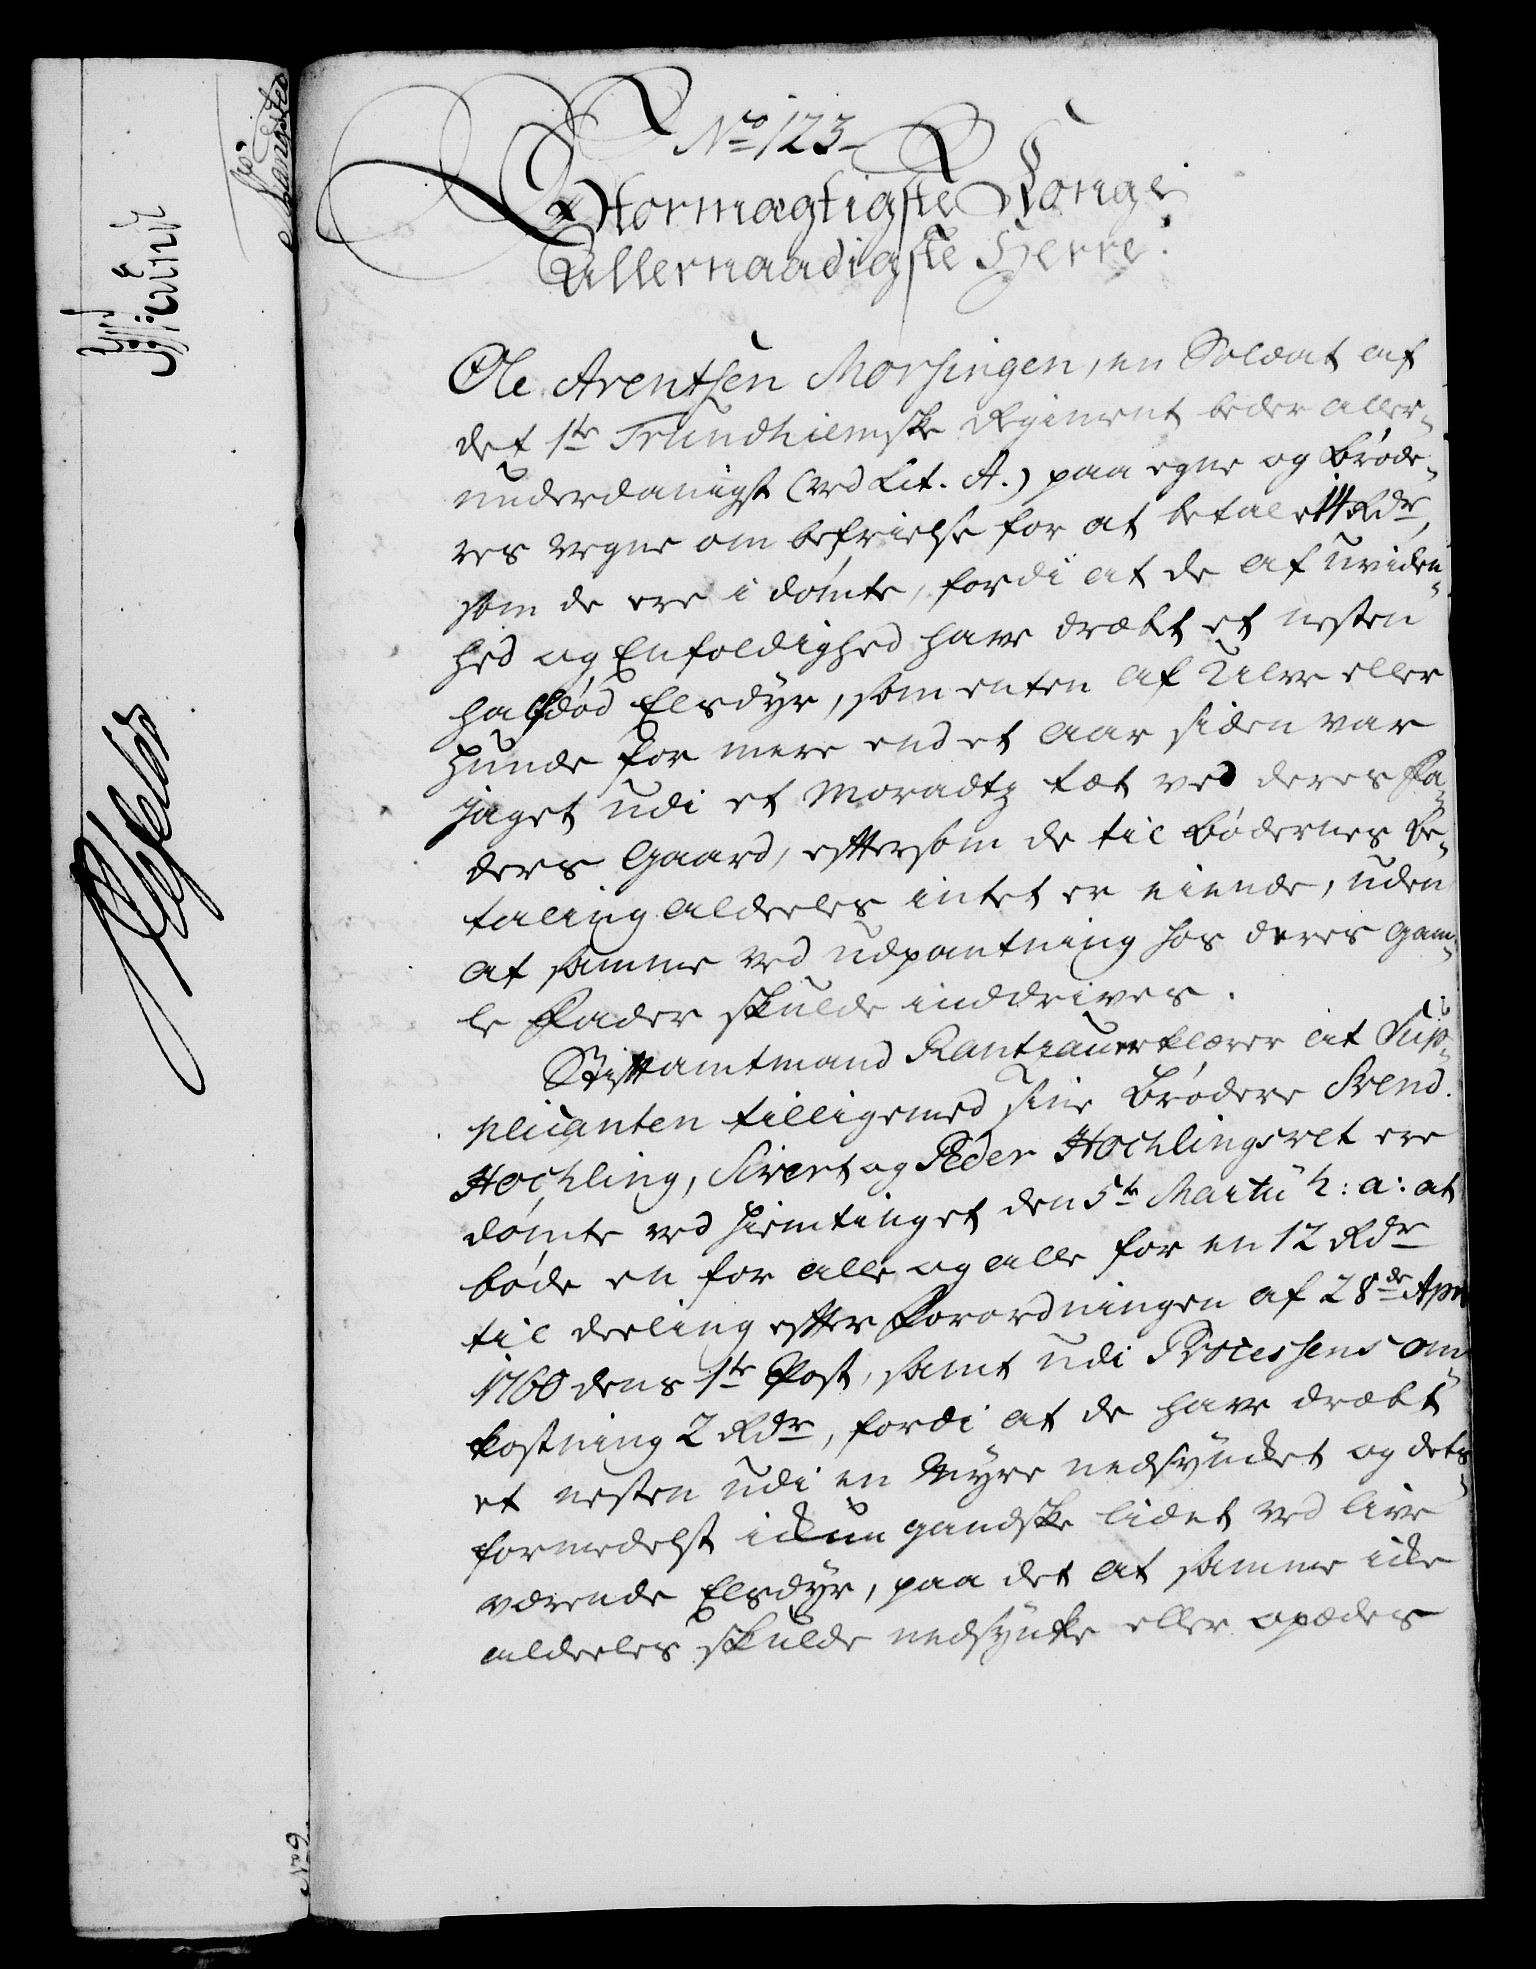 No 123
Stormagtigste Konge
Allernaadigste Herre!
Ole Arentsen Morsingen, en Soldat af
det 1te Trundhiemske Regiment beder aller-
underdanigst (ved Lit. A.) paa egne og Brøde-
res Vegne om befrielse for at betale 14 Rdr,
som de ere i dømte, fordi at de af uviden-
hed og Enfoldighed have dræbt et nesten
halfdød Elsdyr, som enten af Ulve eller
Hunde for mere end et aar siden var
jaget udi et Moradtz tæt ved deres Fa-
ders Gaard, eftersom de til Bødernes Be-
taling aldeeles intet er eiende, uden
at samme ved udpantning hos deres gam-
le Fader skulde inddrives.
Stiftamtmand Rantzau erklærer at Sup-
plicanten tilligemed sine Brødere Svend
Hochling, Sivert og Peder Hochlingsvet ere
dømte ved Hiemtinget den 5te Martii h: a: at
bøde en for alle og alle for en 12 Rdr
til deeling efter Forordningen af 28de Apr
1760 dens 1te Post, samt udi Processens om-
kostning 2 Rdr, fordi at de have dræbt
et nesten udi en Myre nedsyncket og dets-
formedelst ickun gandske lidet ved live
værende Elsdyr, paa det at samme icke
aldeeles skulde nedsyncke eller opædes
No 9